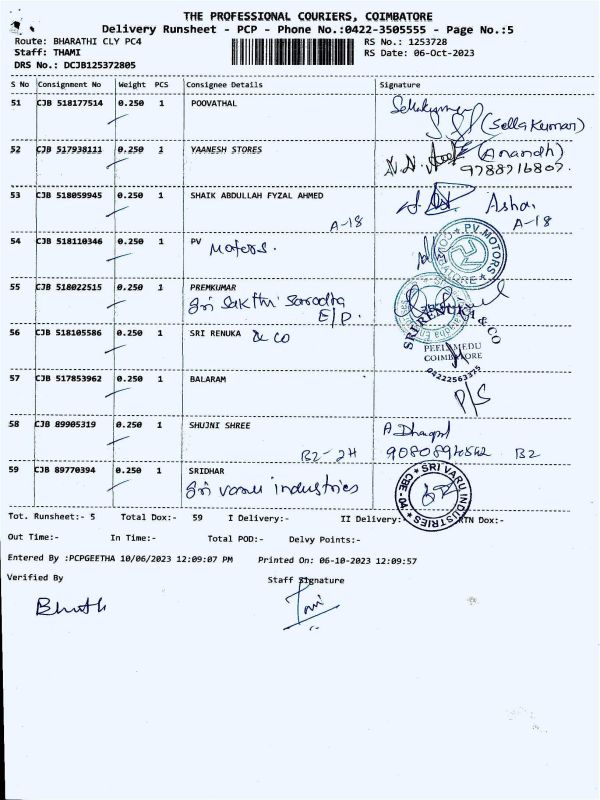 THE PROFESSIONAL COURIERS, COIMBATORE
Delivery Runsheet - PCP - Phone No.:0422-3505555 - Page No.:5
Route: BHARATHI CLY PC4 RS No.: 1253728
Staff: THAMI RS Date: 06-Oct-2023
DRS No.: DCJB125372805
S No Consignment No Weight PCS Consignee Details Signature
51 CJB 518177514 0.250 1 POOVATHAL Sellakumar
(Sella Kumar)
52 CJB 517938111 0.250 1 YAANESH STORES (Anandh)
9788716807.
53 CJB 518059945 0.250 1 SHAIK ABDULLAH FYZAL AHMED
A-18 A-18
54 CJB 518110346 0.250 1 PV PV MOTORS
Motors.
55 CJB 518022515 0.250 1 PREMKUMAR
Sri Sakthi Sarodha
E/P.
56 CJB 518105586 0.250 1 SRI RENUKA & CO SRI RENUKA & CO
PEELAMEDU
COIMBATORE
04222563325
57 CJB 517853962 0.250 1 BALARAM P/S
58 CJB 89905319 0.250 1 SHUJNI SHREE
B2-2H B2
59 CJB 89770394 0.250 1 SRIDHAR SRI VARU INDUSTRIES CBE-04
Sri Varu industries
Tot. Runsheet:- 5 Total Dox:- 59 I Delivery:- II Delivery:- RTN Dox:-
Out Time:- In Time:- Total POD:- Delvy Points:-
Entered By :PCPGEETHA 10/06/2023 12:09:07 PM Printed On: 06-10-2023 12:09:57
Verified By Staff Signature